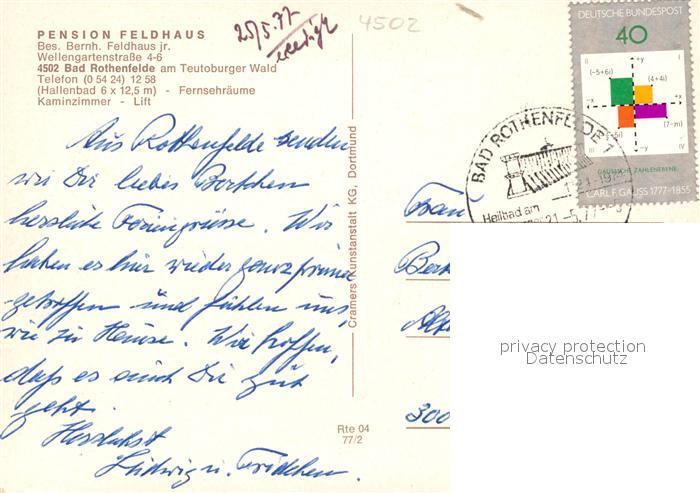 PENSION FELDHAUS
Bes. Bernh. Feldhaus jr.
Wellengartenstraße 4-6
4502 Bad Rothenfelde am Teutoburger Wald
Telefon (0 54 24) 12 58
(Hallenbad 6 x 12,5 m) - Fernsehräume
Kaminzimmer - Lift
25/5.77
4502
Aus Rothenfelde senden
wir Dir liebes Bertchen
herzliche Feriengrüsse. Wir
haben es hier wieder ganz prima
getroffen und fühlen uns,
wie zu Hause. Wir hoffen,
daß es auch Dir gut
geht.
Herzlichst
Ludwig u. Friedchen.
Cramers Kunstanstalt KG, Dortmund
Rte 04
77/2
DEUTSCHE BUNDESPOST
40
II +y I
(-5+6i) (4+4i)
-x +x
(-5i) (7-i)
III -y IV
GAUSSSCHE ZAHLENEBENE
CARL F. GAUSS 1777-1855
BAD ROTHENFELDE 1
Heilbad am
21.-5.77
Frau
300
privacy protection
Datenschutz